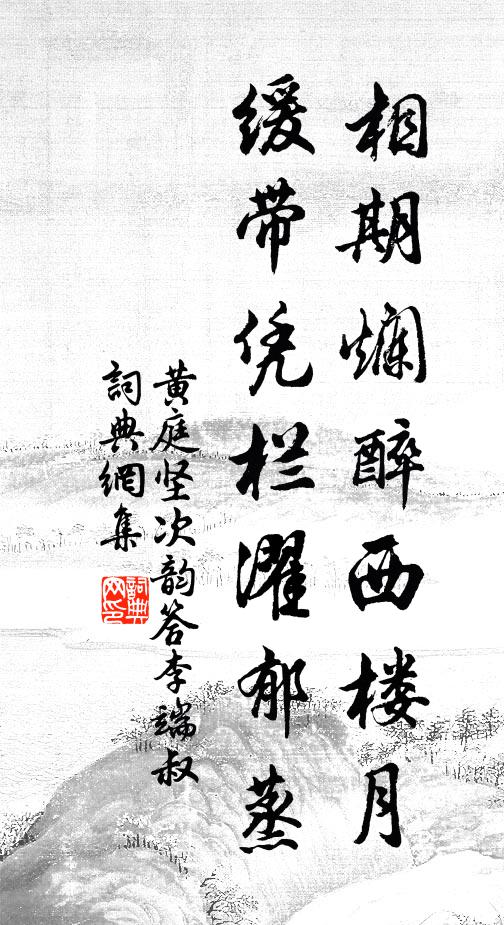 相期爛醉西楼月
缓带凭栏濯郁蒸
黄庭坚次韵答李端叔
詞典網集
詞典
网印